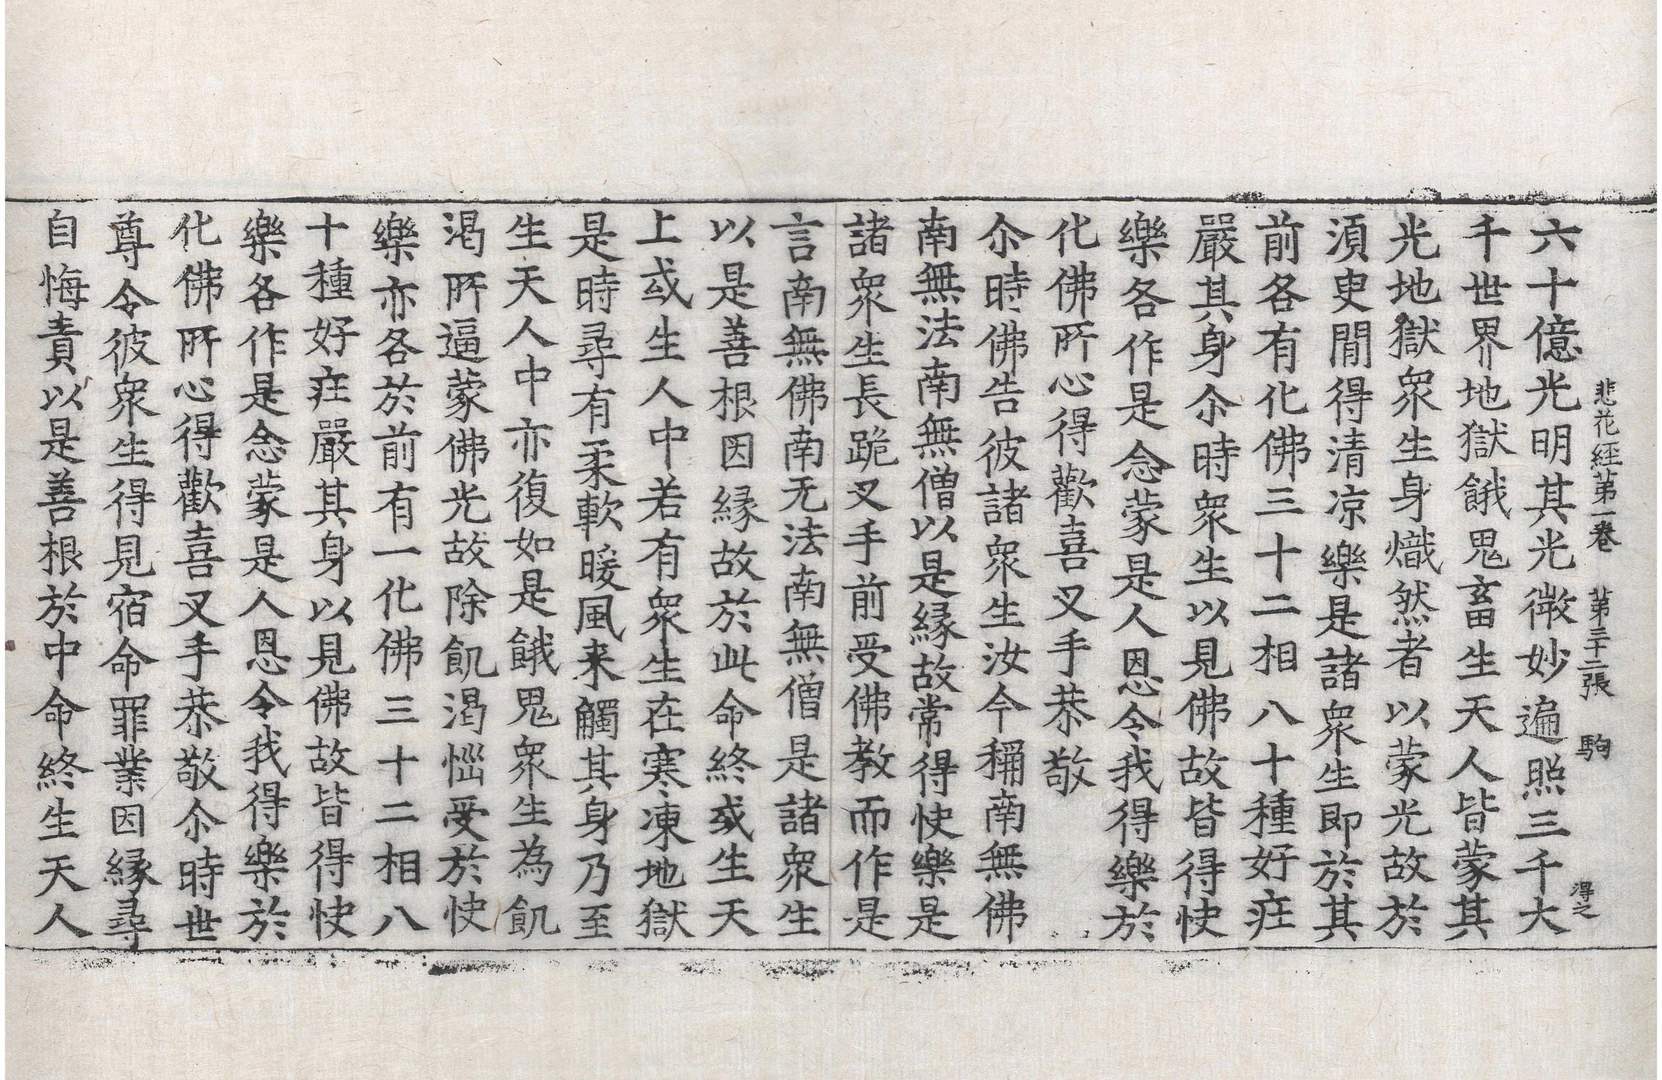 悲花經第一卷 第三十二張 駒 得之
六十億光明其光微妙遍照三千大
千世界地獄餓鬼畜生天人皆蒙其
光地獄衆生身熾然者以蒙光故於
須臾閒得清凉樂是諸衆生即於其
前各有化佛三十二相八十種好莊
嚴其身尒時衆生以見佛故皆得快
樂各作是念蒙是人恩令我得樂於
化佛所心得歡喜叉手恭敬
尒時佛告彼諸衆生汝今稱南無佛
南無法南無僧以是緣故常得快樂是
諸衆生長跪叉手前受佛教而作是
言南無佛南无法南無僧是諸衆生
以是善根因緣故於此命終或生天
上或生人中若有衆生在寒凍地獄
是時尋有柔軟暖風来觸其身乃至
生天人中亦復如是餓鬼衆生為飢
渴所逼蒙佛光故除飢渴惱受於快
樂亦各於前有一化佛三十二相八
十種好莊嚴其身以見佛故皆得快
樂各作是念蒙是人恩令我得樂於
化佛所心得歡喜叉手恭敬尒時世
尊令彼衆生得見宿命罪業因緣尋
自悔責以是善根於中命終生天人